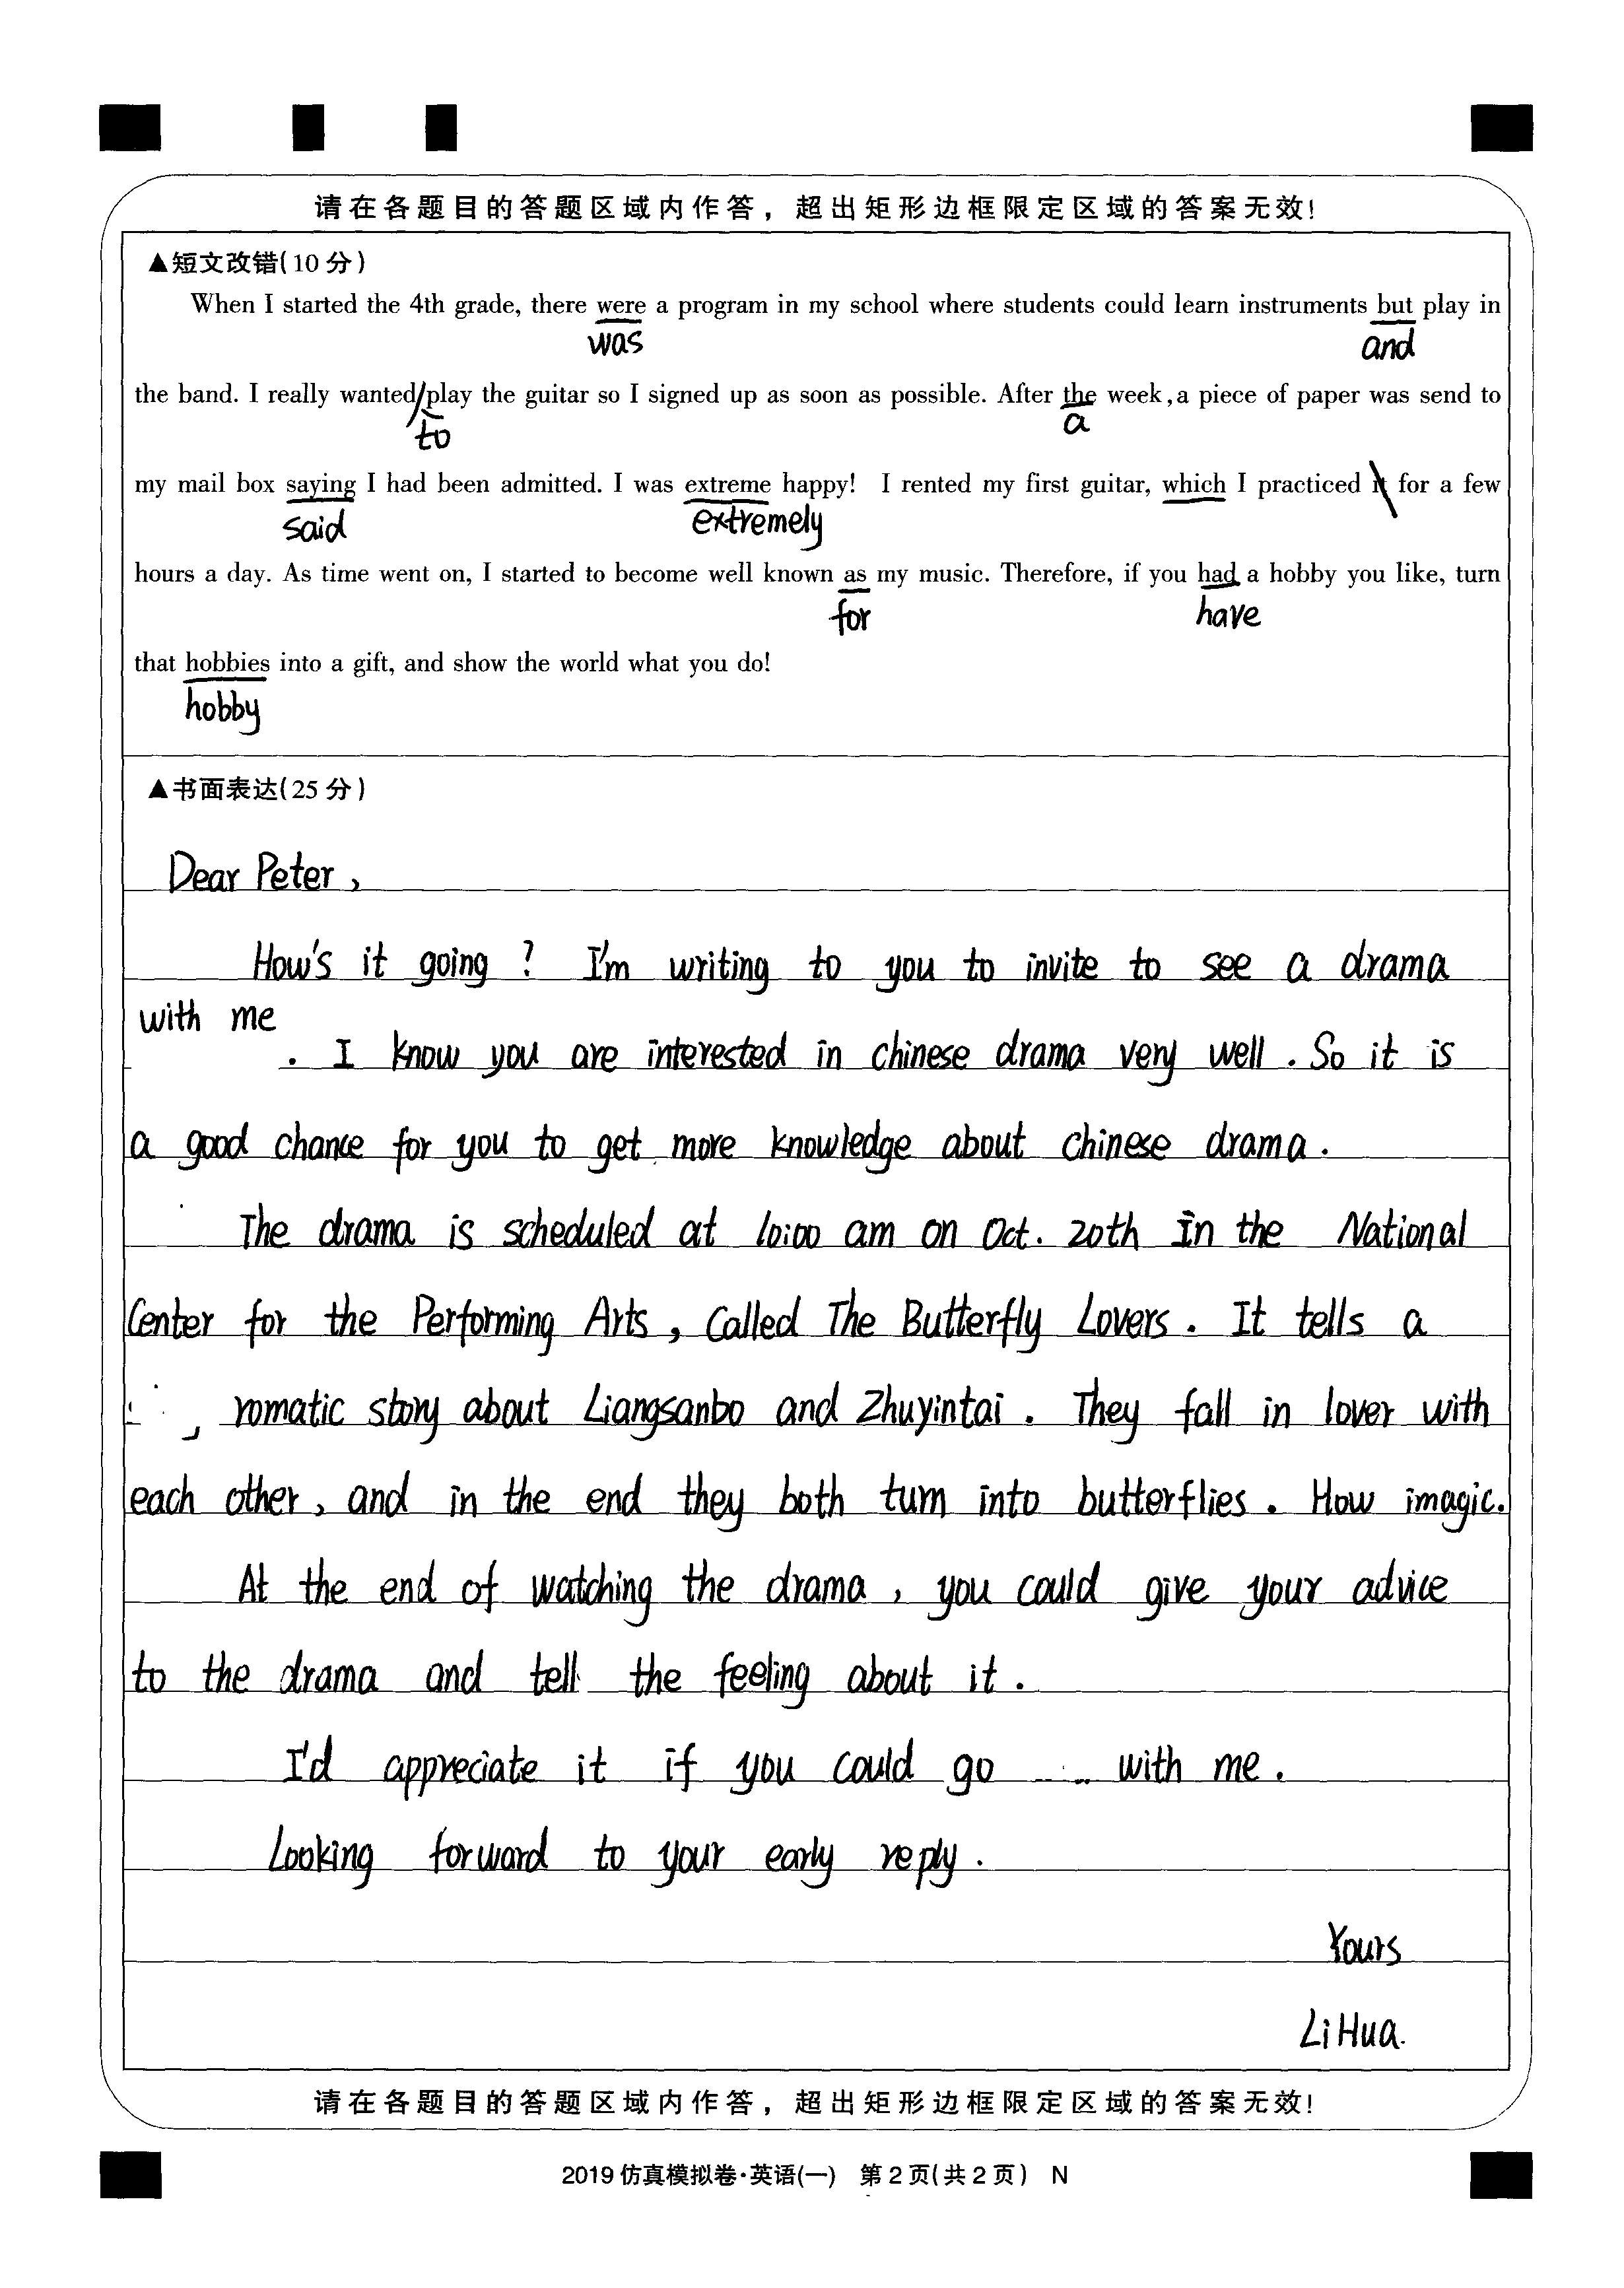 请在各题目的答题区域内作答，超出矩形边框限定区域的答案无效!
▲短文改错(10分)
When I started the 4th grade, there were a program in my school where students could learn instruments but play in
was and
the band. I really wanted play the guitar so I signed up as soon as possible. After the week, a piece of paper was send to
to a
my mail box saying I had been admitted. I was extreme happy! I rented my first guitar, which I practiced it for a few
said extremely
hours a day. As time went on, I started to become well known as my music. Therefore, if you had a hobby you like, turn
for have
that hobbies into a gift, and show the world what you do!
hobby
▲书面表达(25分)
Dear Peter,
How's it going? I'm writing to you to invite to see a drama
with me
. I know you are interested in chinese drama very well. So it is
a good chance for you to get more knowledge about chinese drama.
The drama is scheduled at 10:00 am on Oct. 20th In the National
Center for the Performing Arts, Called The Butterfly Lovers. It tells a
romatic story about Liangsanbo and Zhuyintai. They fall in lover with
each other, and in the end they both turn into butterflies. How imagic.
At the end of watching the drama, you could give your advice
to the drama and tell the feeling about it.
I'd appreciate it if you could go with me.
Looking forward to your early reply.
Yours
Li Hua.
请在各题目的答题区域内作答，超出矩形边框限定区域的答案无效!
2019仿真模拟卷·英语(一) 第2页(共2页) N